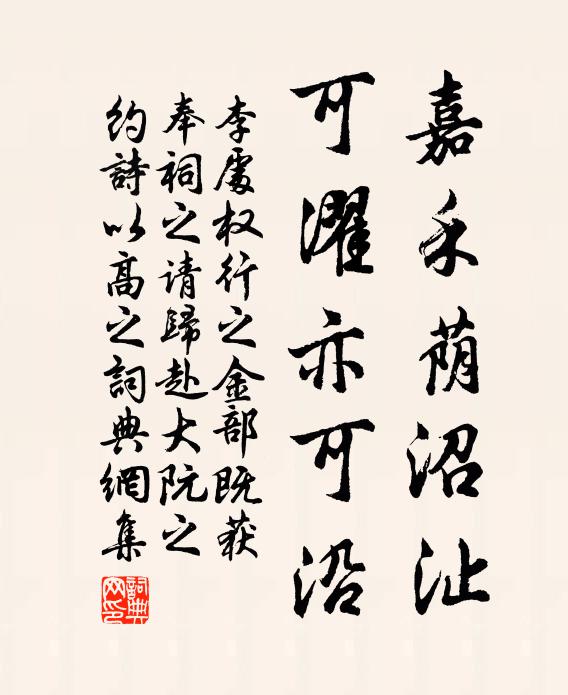 嘉禾荫沼沚
可濯亦可沿
李处权行之金部既获
奉祠之请歸赴大阮之
约詩以高之詞典網集
詞典網印